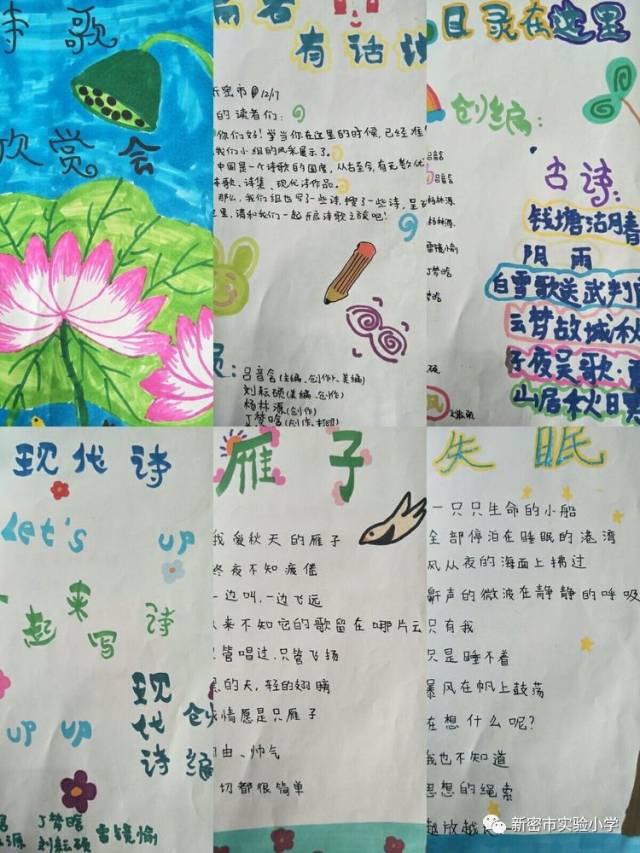 诗歌
欣赏会
有话说
新密市 12/17
的读者们：
你们好！当你在这里的时候，已经准
我们小组的风采展示了。
中国是一个诗歌的国度，从古至今，有无数优
诗集、现代诗作品。
那么，我们组也写了一些诗，搜了一些诗，呈
里，请和我们一起开启诗歌之旅吧！
员：
吕音含（主编、创作、美编）
刘耘硕（美编、创作）
杨林源（创作）
丁梦晗（创作、封面）
目录在这里
创编：
古诗：
钱塘沽月春
阴雨
白雪歌送武判官
云梦故城秋
子夜吴歌·
山居秋日
现代诗
Let's up
一起来写诗
up up
现代诗
创编
丁梦晗
刘耘硕
雷镜愉
雁子
我爱秋天的雁子
终夜不知疲倦
一边叫，一边飞远
从来不知它的歌留在哪片云
只管唱过，只管飞扬
黑的天，轻的翅膀
我情愿是只雁子
自由、帅气
一切都很简单
失眠
一只只生命的小船
全部停泊在睡眠的港湾
风从夜的海面上拂过
鼾声的微波在静静的呼吸
只有我
只是睡不着
暴风在帆上鼓荡
在想什么呢？
我也不知道
思想的绳索
越放越
新密市实验小学